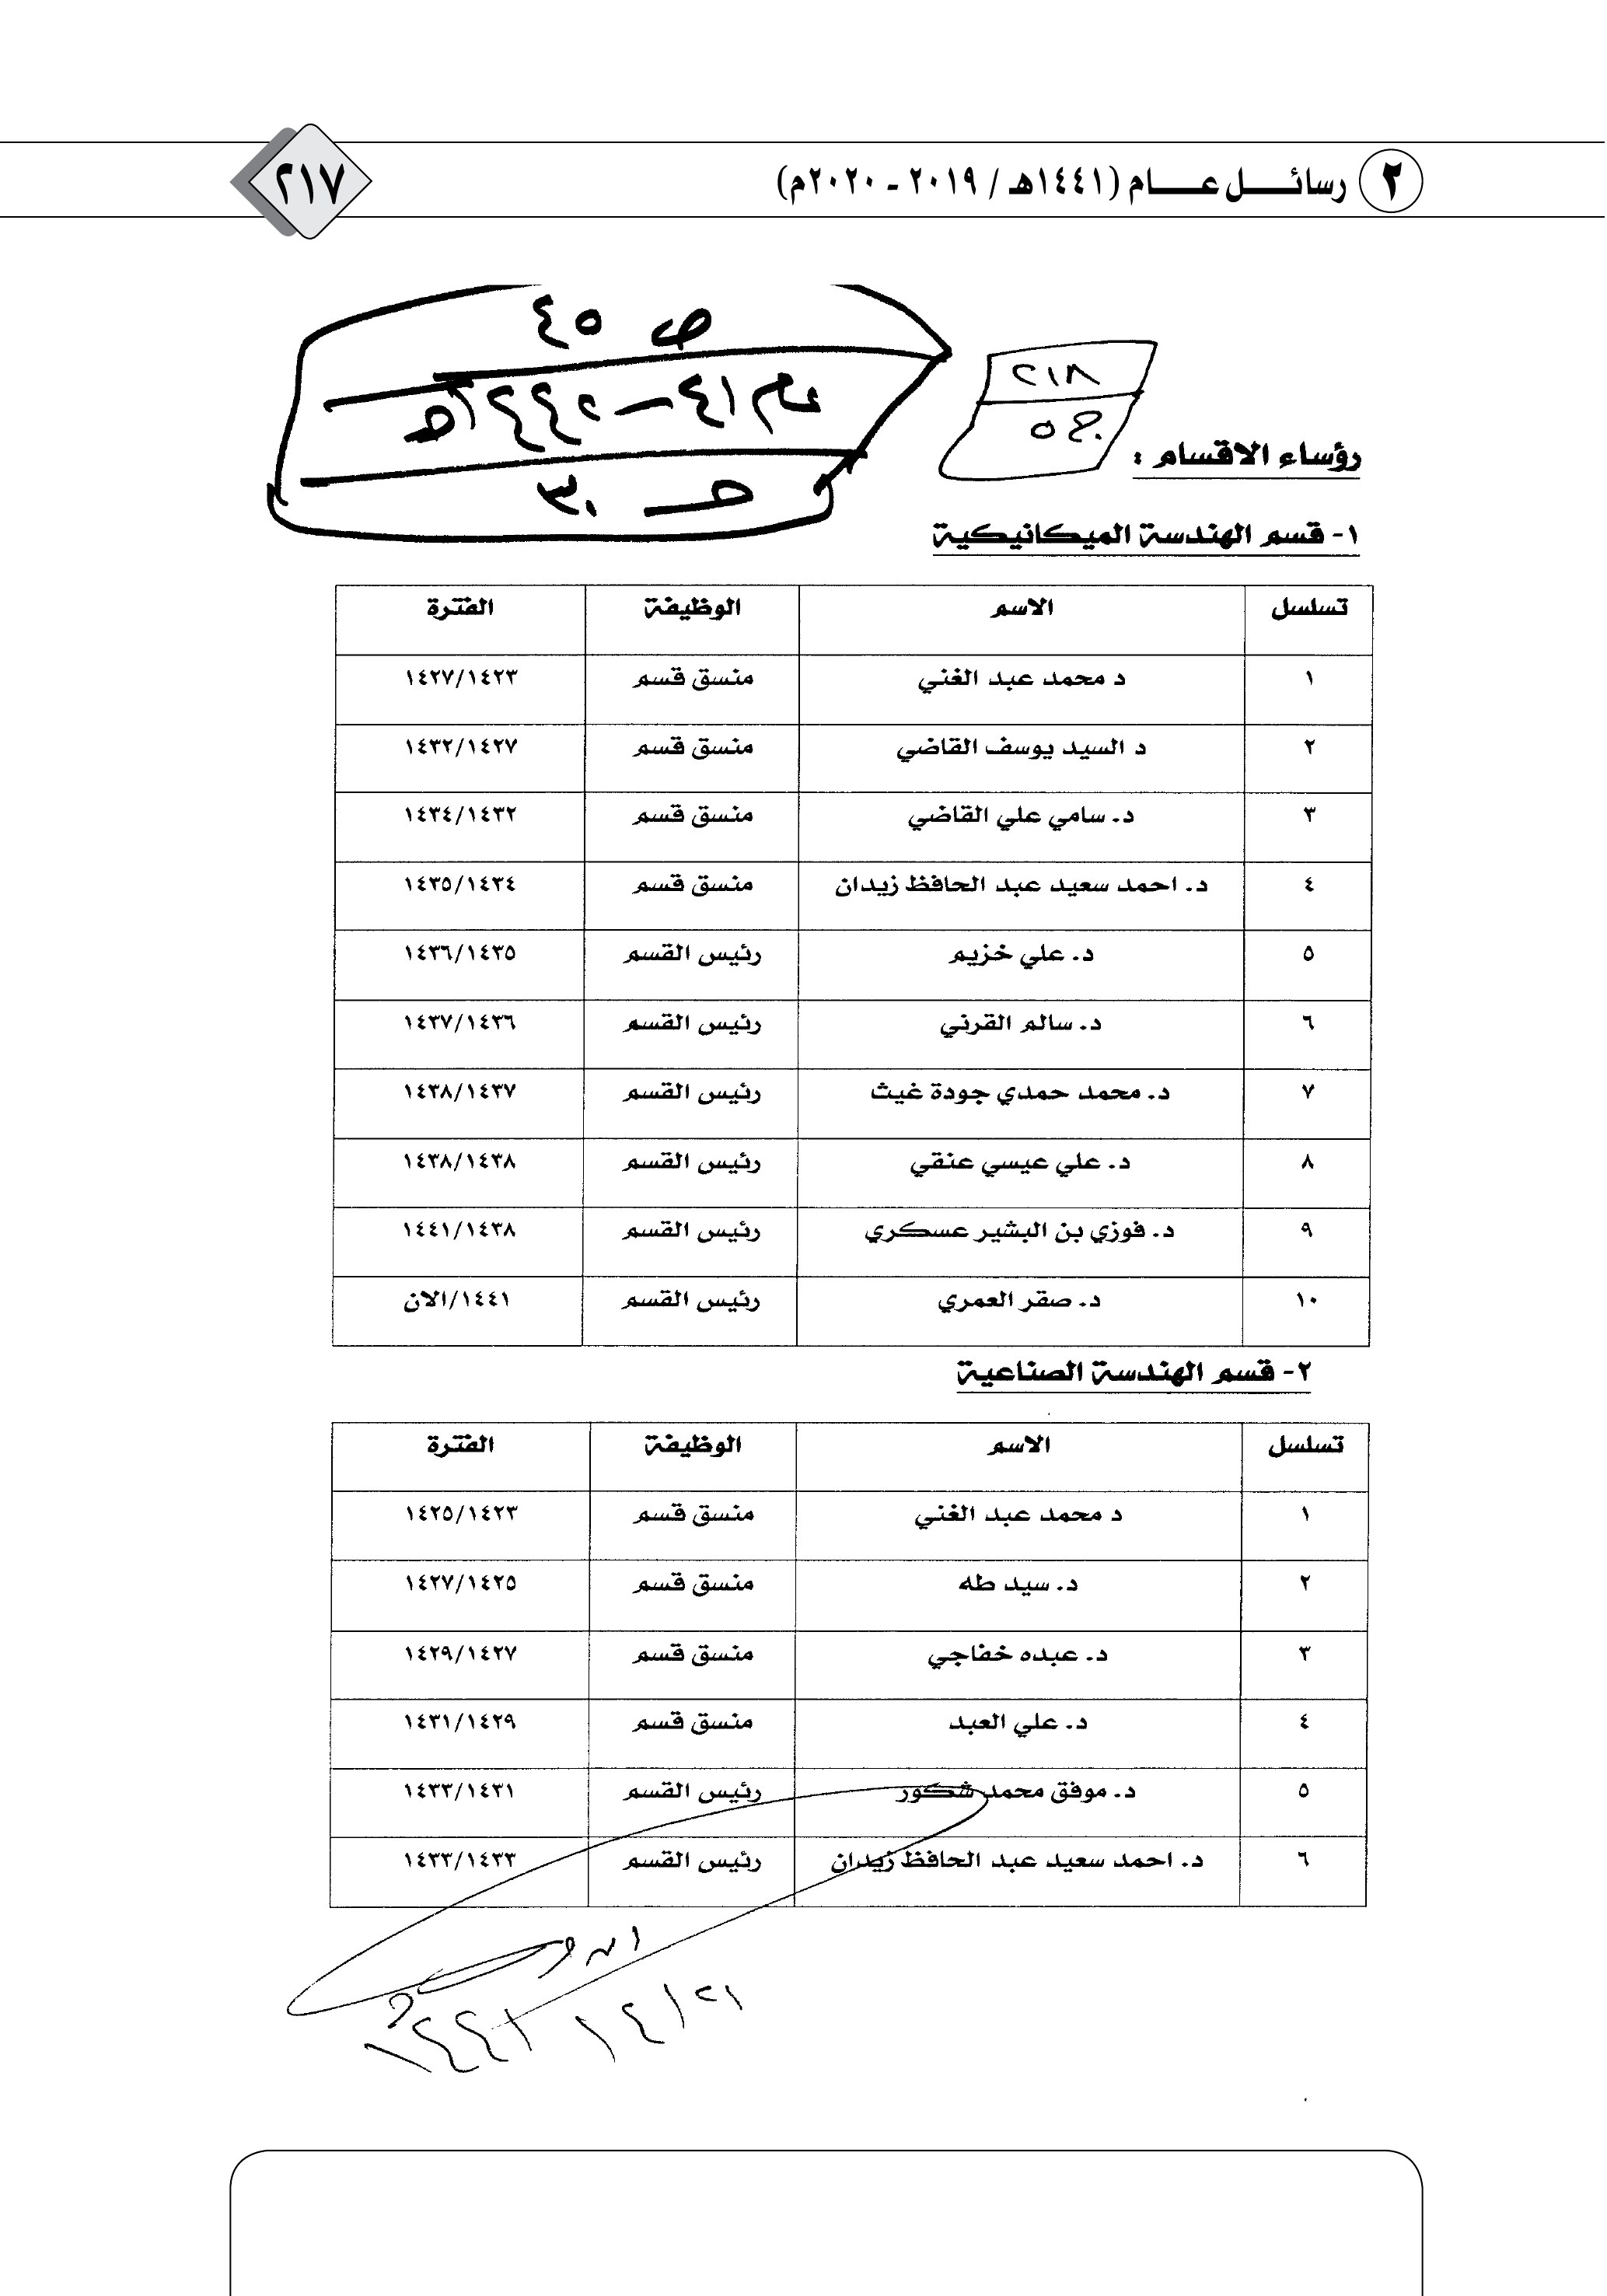 ٢ رسائل عام (١٤٤١هـ / ٢٠١٩ - ٢٠٢٠م) ٢١٧
ص ٤٥
عام ٤١ – ١٤٤٢هـ
٢١٨
ج ٥
حـ ٣٠
رؤساء الاقسام :
١- قسم الهندسة الميكانيكية
تسلسل الاسم الوظيفة الفترة
١ د محمد عبد الغني منسق قسم ١٤٢٧/١٤٢٣
٢ د السيد يوسف القاضي منسق قسم ١٤٣٢/١٤٢٧
٣ د. سامي علي القاضي منسق قسم ١٤٣٤/١٤٣٢
٤ د. احمد سعيد عبد الحافظ زيدان منسق قسم ١٤٣٥/١٤٣٤
٥ د. علي خزيم رئيس القسم ١٤٣٦/١٤٣٥
٦ د. سالم القرني رئيس القسم ١٤٣٧/١٤٣٦
٧ د. محمد حمدي جودة غيث رئيس القسم ١٤٣٨/١٤٣٧
٨ د. علي عيسي عنقي رئيس القسم ١٤٣٨/١٤٣٨
٩ د. فوزي بن البشير عسكري رئيس القسم ١٤٤١/١٤٣٨
١٠ د. صقر العمري رئيس القسم ١٤٤١/الان
٢- قسم الهندسة الصناعية
تسلسل الاسم الوظيفة الفترة
١ د محمد عبد الغني منسق قسم ١٤٢٥/١٤٢٣
٢ د. سيد طه منسق قسم ١٤٢٧/١٤٢٥
٣ د. عبده خفاجي منسق قسم ١٤٢٩/١٤٢٧
٤ د. علي العبد منسق قسم ١٤٣١/١٤٢٩
٥ د. موفق محمد شكور رئيس القسم ١٤٣٣/١٤٣١
٦ د. احمد سعيد عبد الحافظ زيدان رئيس القسم ١٤٣٣/١٤٣٣